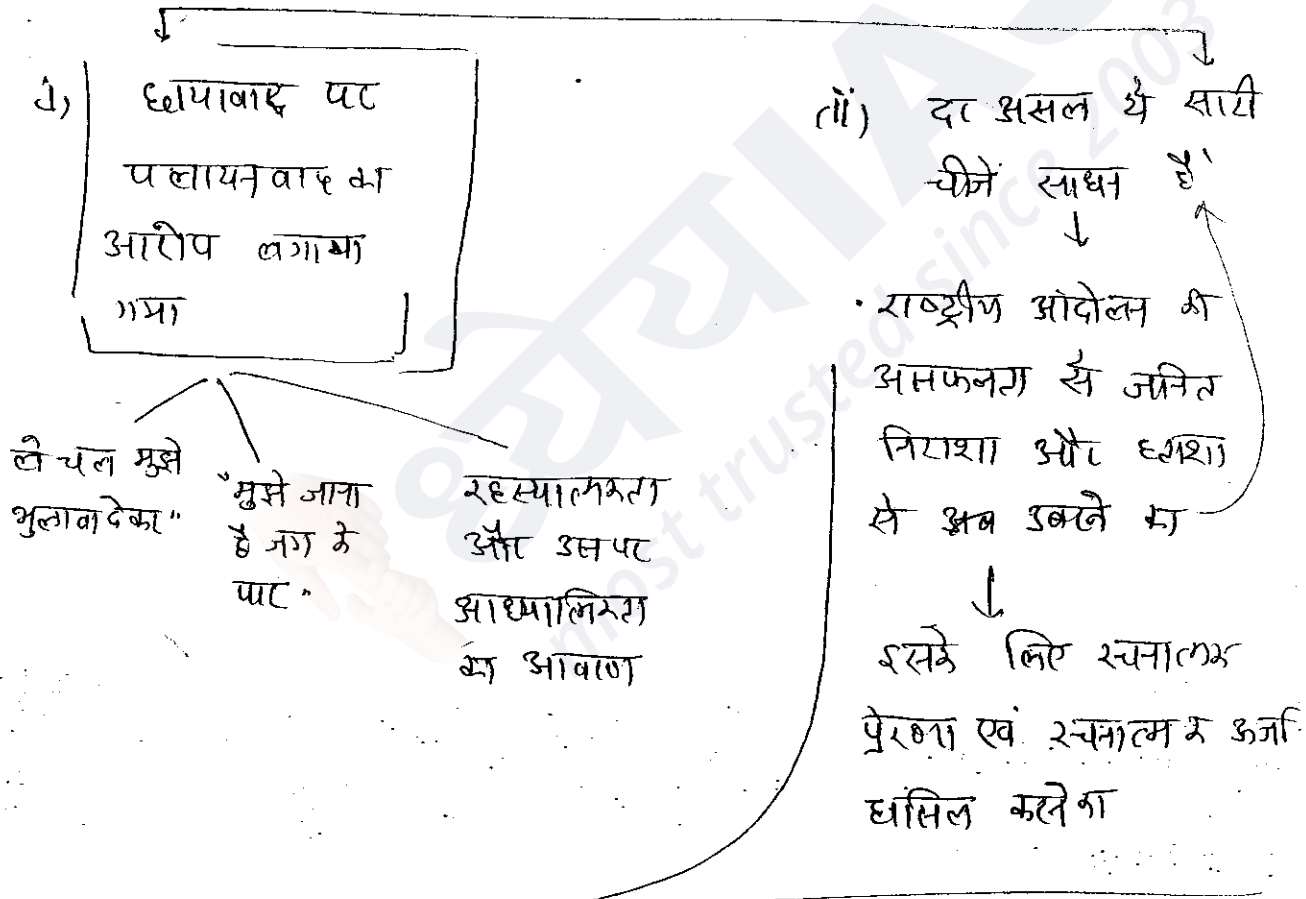 i) छायावाद पर
पलायनवाद का
आरोप लगाया
गया
ले चल मुझे
भुलावा देकर"
"मुझे जाना
है जग के
पार"
रहस्यात्मकता
और उस पर
आध्यात्मिकता
का आवरण
(ii) दर असल ये सारी
चीजें साधन हैं
• राष्ट्रीय आंदोलन की
असफलता से जनित
निराशा और हताशा
से उबरने का
इसके लिए रचनात्मक
प्रेरणा एवं रचनात्मक ऊर्जा
हासिल करने का
ध्येय IAS
most trusted since 2003